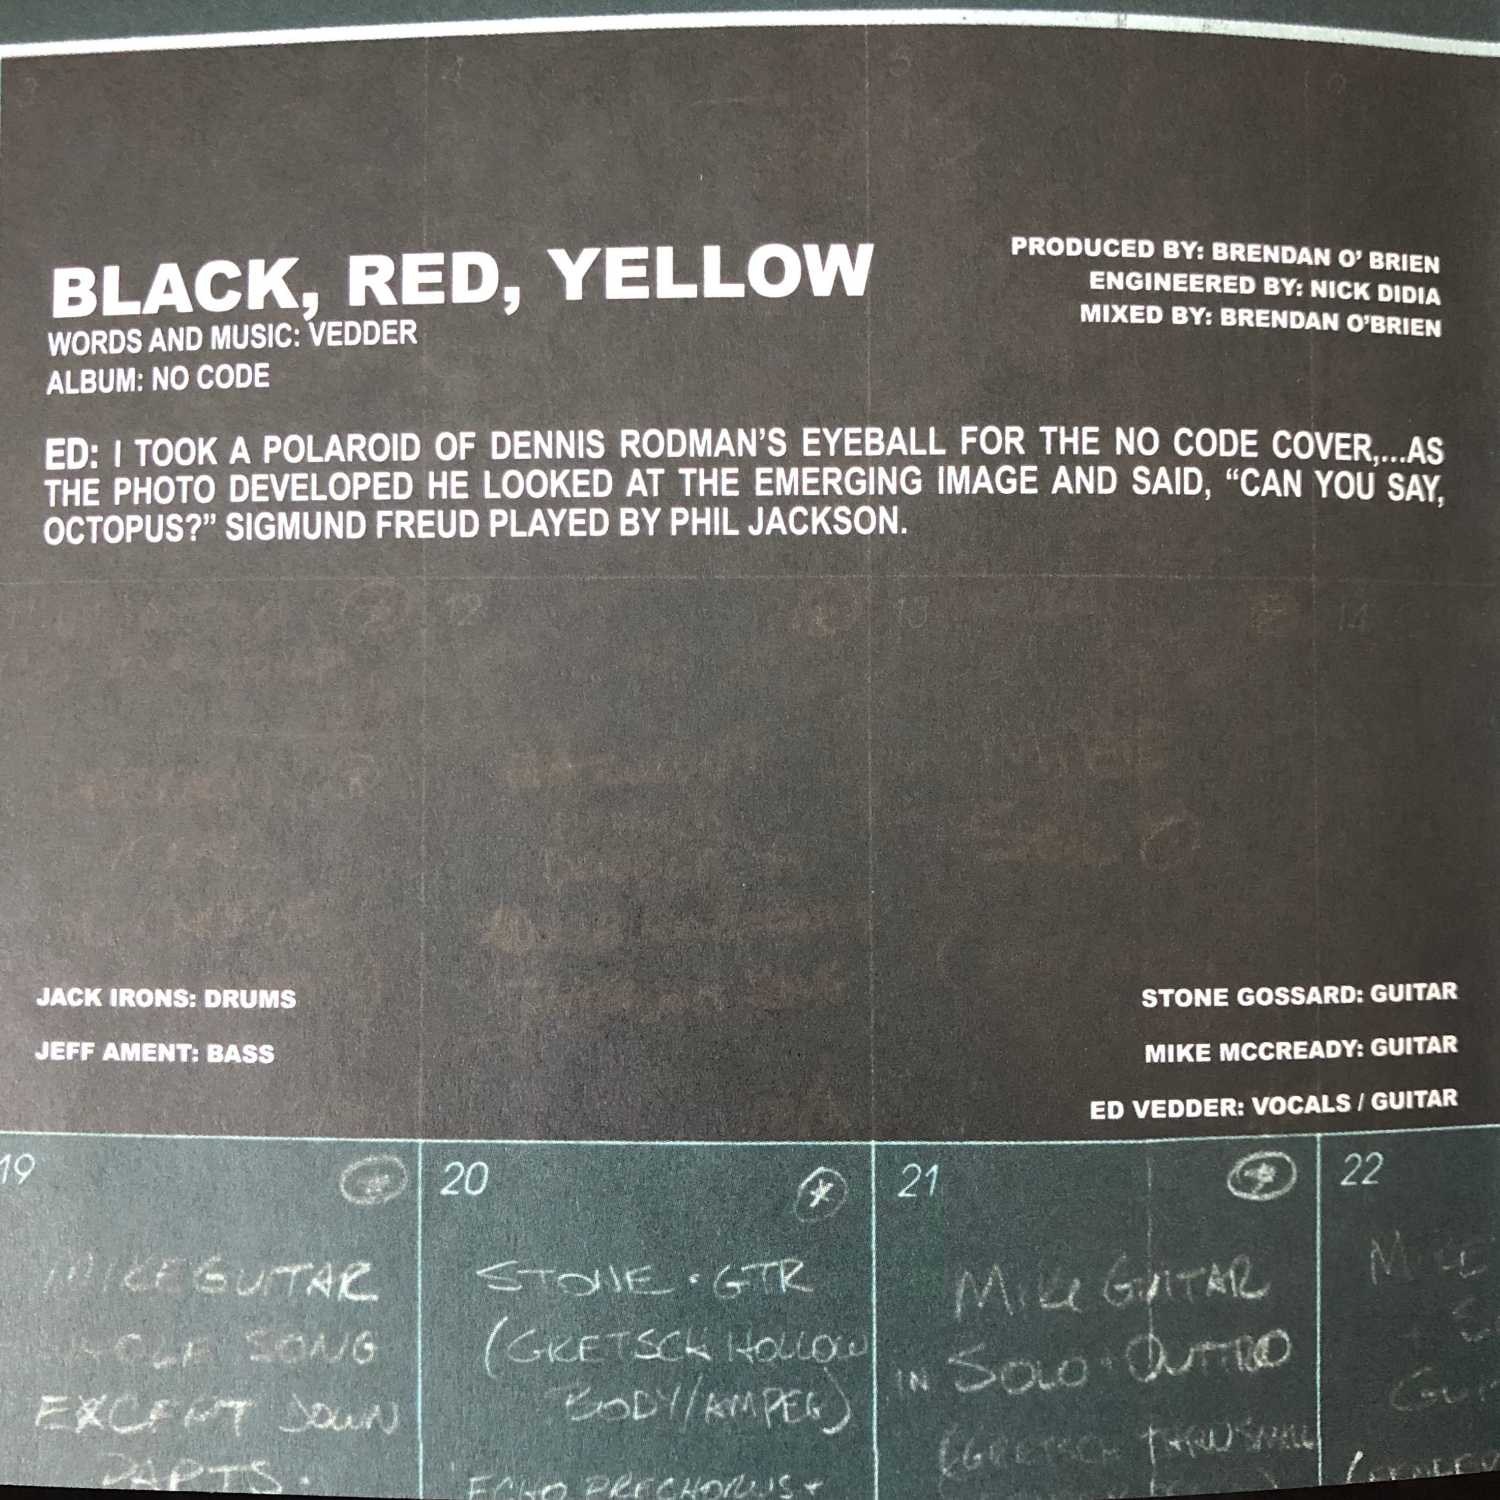 BLACK, RED, YELLOW
WORDS AND MUSIC: VEDDER
ALBUM: NO CODE
PRODUCED BY: BRENDAN O' BRIEN
ENGINEERED BY: NICK DIDIA
MIXED BY: BRENDAN O'BRIEN
ED: I TOOK A POLAROID OF DENNIS RODMAN'S EYEBALL FOR THE NO CODE COVER,...AS
THE PHOTO DEVELOPED HE LOOKED AT THE EMERGING IMAGE AND SAID, "CAN YOU SAY,
OCTOPUS?" SIGMUND FREUD PLAYED BY PHIL JACKSON.
JACK IRONS: DRUMS
JEFF AMENT: BASS
STONE GOSSARD: GUITAR
MIKE MCCREADY: GUITAR
ED VEDDER: VOCALS / GUITAR
19
MIKE GUITAR
SONG
EXCEPT DOWN
PARTS.
20
STONE · GTR
(GRETSCH HOLLOW
BODY/AMPEG)
ECHO PRECHORUS +
21
MIKE GUITAR
IN SOLO · OUTTRO
(GRETSCH THRU SMALL
22